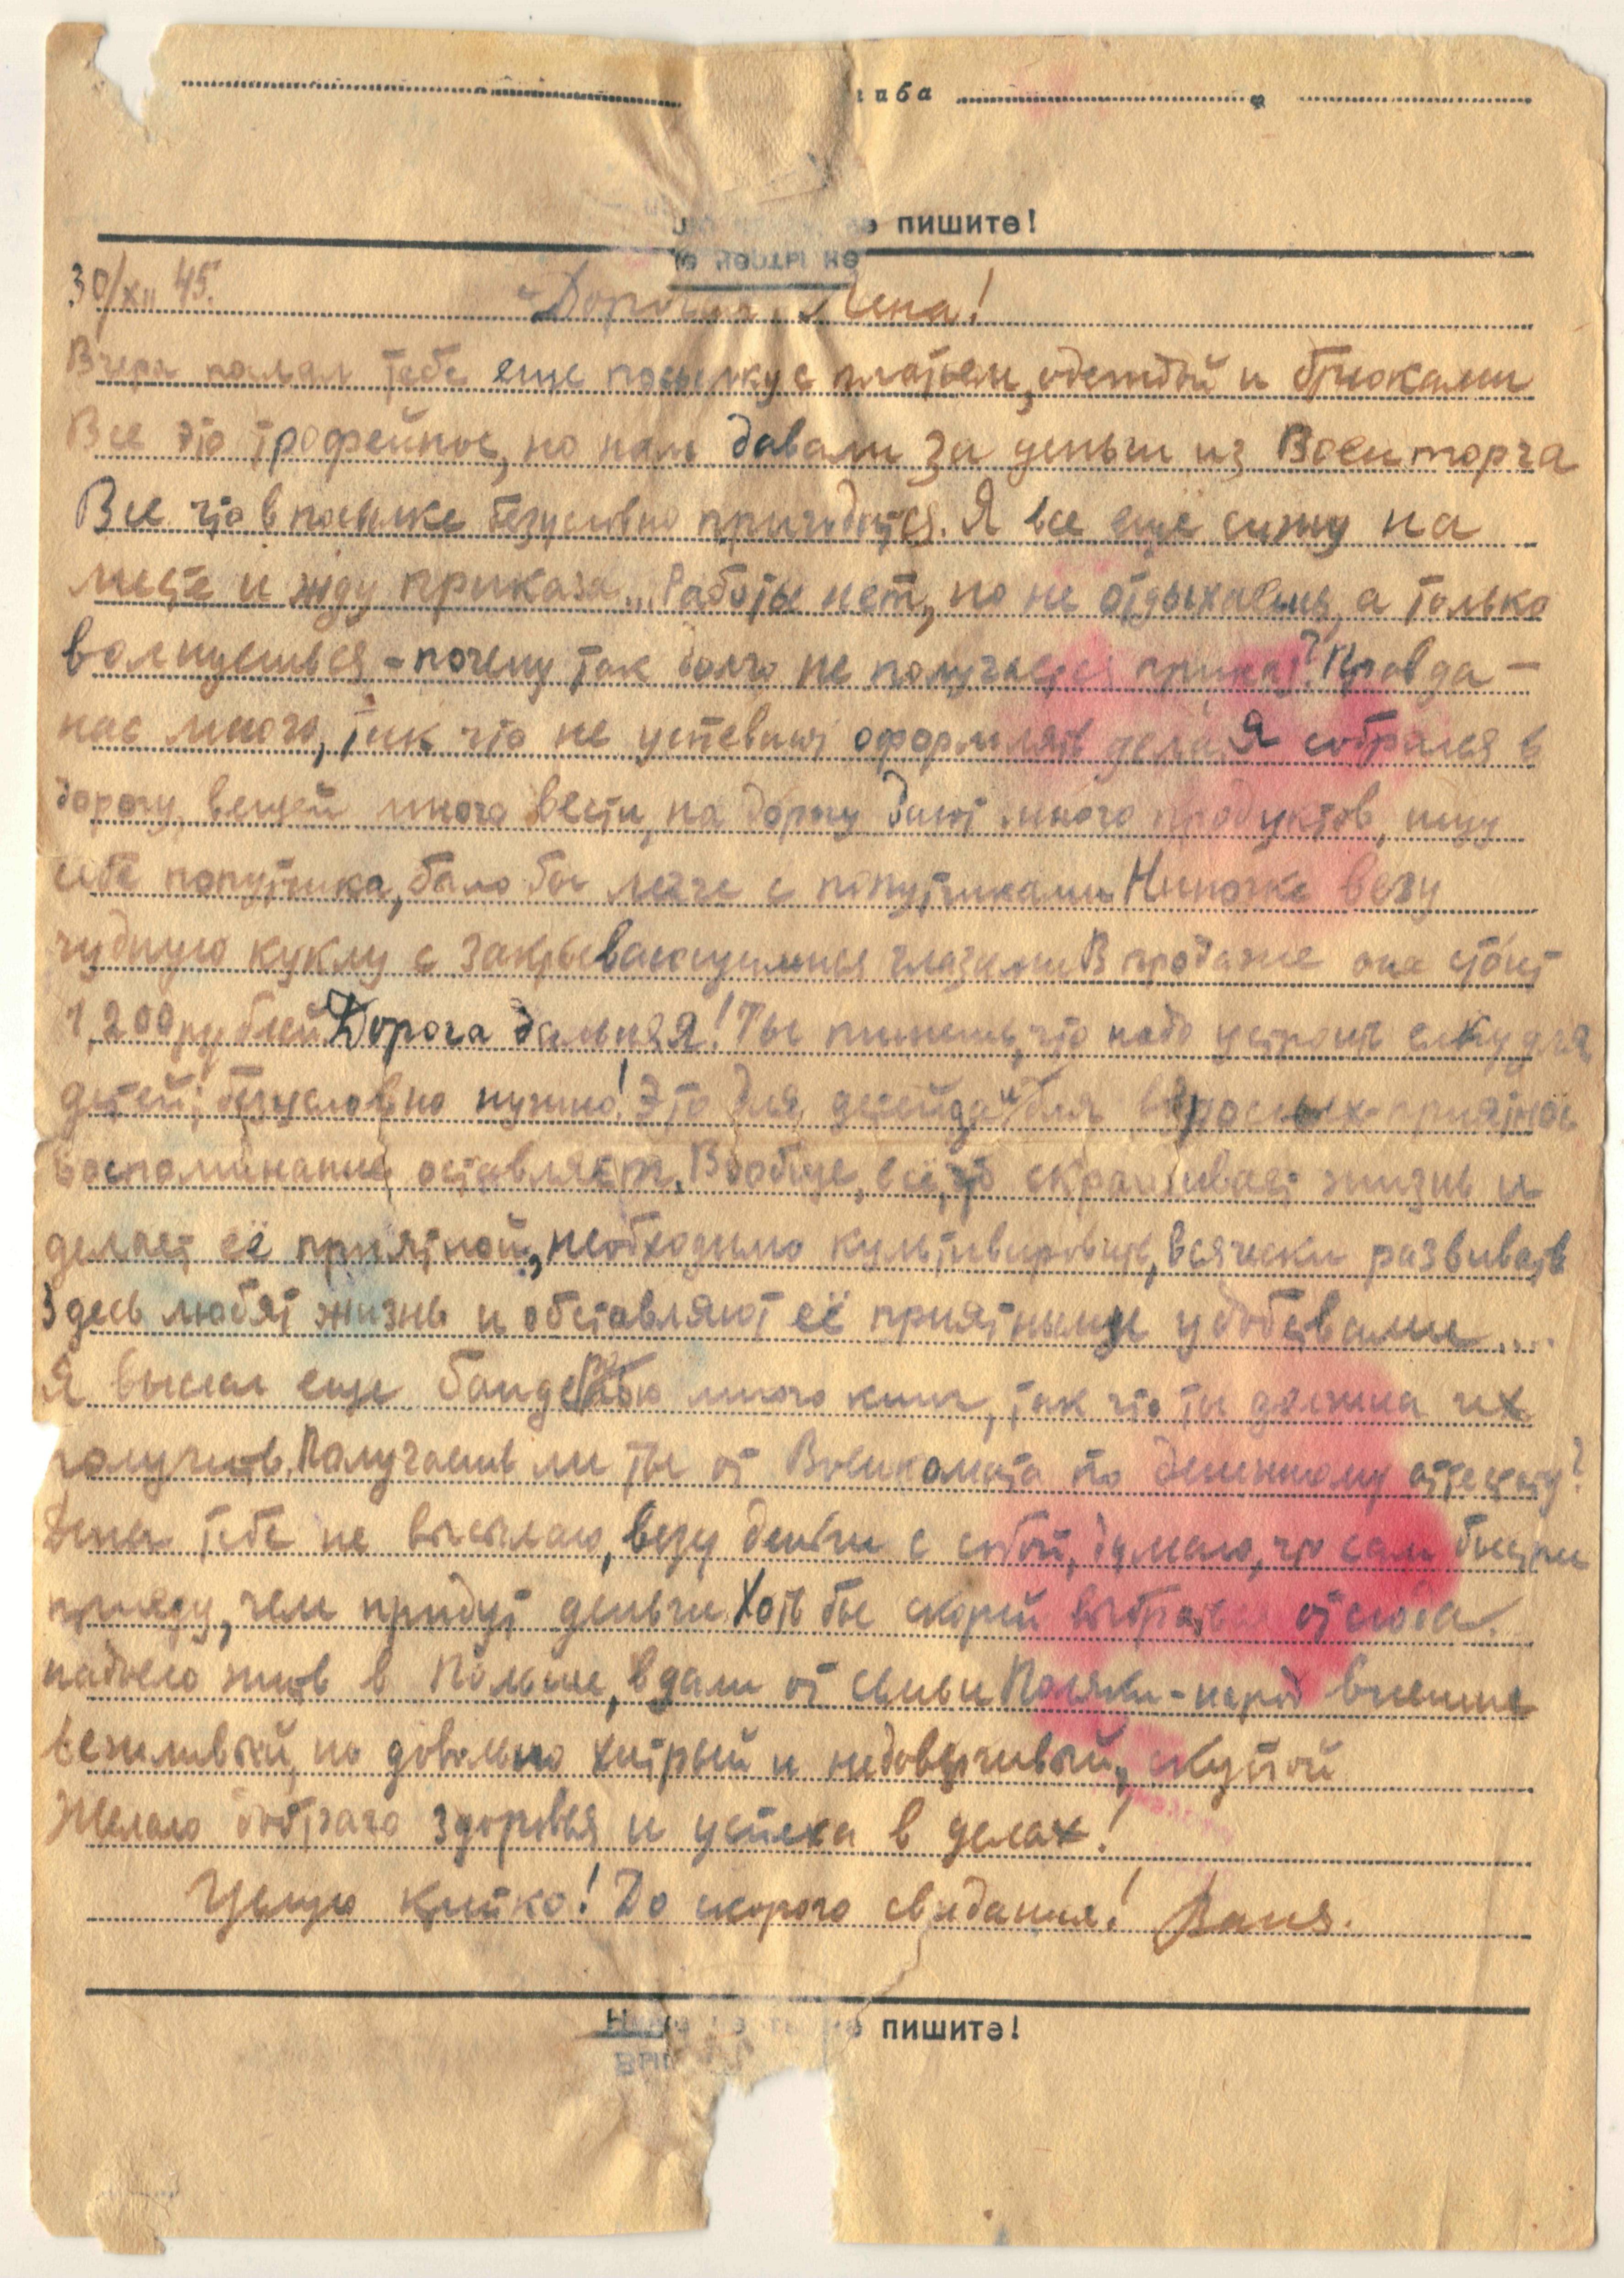 аба
пишите!
30/XII 45.
Дорогая Лена!
Вчера послал тебе еще посылку с платьем, одеждой и брюками
Все это трофейное, но нам давали за деньги из Военторга
Все что в посылке безусловно пригодится. Я все ещё сижу на
месте и жду приказа... Работы нет, но не отдыхаешь, а только
волнуешься - почему так долго не получается приказ? Правда -
нас много, так что не успевают оформлять дела. Я собрался в
дорогу, вещей много везти, на дорогу дают много продуктов, ищу
себе попутчика, было бы легче с попутчиками. Ниночке везу
чудную куклу с закрывающимися глазами. В продаже она стоит
1,200 рублей. Дорога дальняя! Ты пишешь, что надо устроить елку для
детей; безусловно нужно! Это для детей, да и для взрослых - приятное
воспоминание оставляет. Вообще, всё, что скрашивает жизнь и
делает её приятной, необходимо культивировать, всячески развивать
Здесь любят жизнь и обставляют её приятными удобствами....
Я выслал еще бандеролью много книг, так что ты должна их
получить. Получаешь ли ты от Военкомата по денежному аттестату?
Денег тебе не высылаю, везу деньги с собой, думаю, что сам быстрее
приеду, чем придут деньги. Хоть бы скорей выбраться отсюда.
надоело жить в Польше, вдали от семьи. Поляки - народ внешне
вежливый, но довольно хитрый и недоверчивый, скупой
Желаю доброго здоровья и успеха в делах!
Целую крепко! До скорого свидания! Ваня.
пишите!